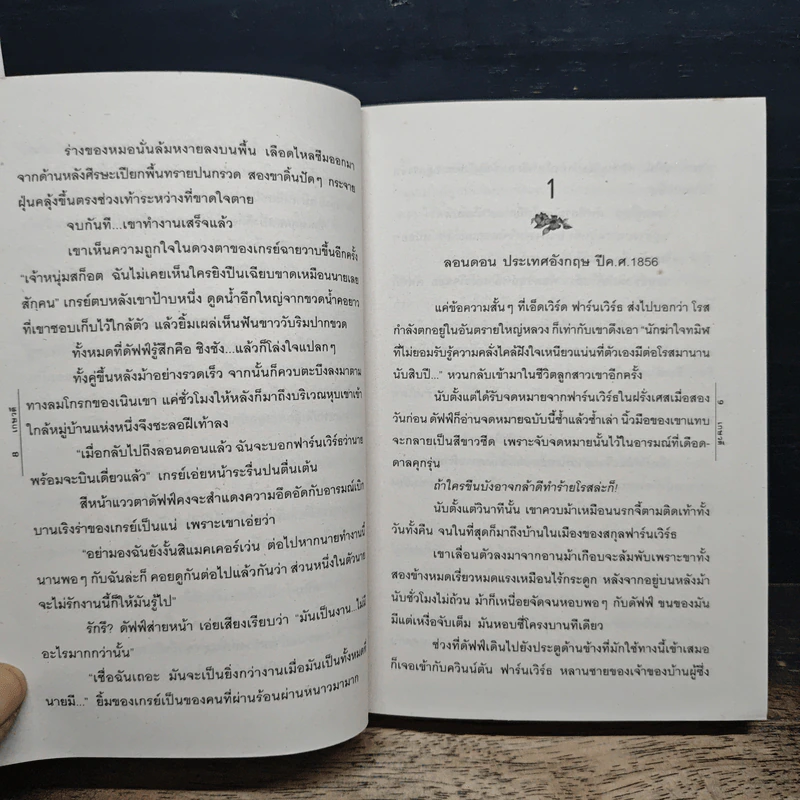 ร่างของหมอนั่นล้มหงายลงบนพื้น เลือดไหลซึมออกมา
จากด้านหลังศีรษะเปียกพื้นทรายปนกรวด สองขาดิ้นปัดๆ กระจาย
ฝุ่นคลุ้งขึ้นตรงช่วงเท้าระหว่างที่ขาดใจตาย
จบกันที...เขาทำงานเสร็จแล้ว
เขาเห็นความถูกใจในดวงตาของเกรย์ฉายวาบขึ้นอีกครั้ง
"เจ้าหนุ่มสก็อต ฉันไม่เคยเห็นใครยิงปืนเฉียบขาดเหมือนนายเลย
สักคน" เกรย์ตบหลังเขาป้าบหนึ่ง ดูดน้ำอึกใหญ่จากขวดน้ำคอยาว
ที่เขาชอบเก็บไว้ใกล้ตัว แล้วยิ้มเผล่เห็นฟันขาววับริมปากขวด
ทั้งหมดที่ดัฟฟ์รู้สึกคือ ชิงชัง...แล้วก็โล่งใจแปลกๆ
ทั้งคู่ขึ้นหลังม้าอย่างรวดเร็ว จากนั้นก็ควบตะบึงลงมาตาม
ทางลมโกรกของเนินเขา แค่ชั่วโมงให้หลังก็มาถึงบริเวณหุบเขาเข้า
ใกล้หมู่บ้านแห่งหนึ่งจึงชะลอฝีเท้าลง
"เมื่อกลับไปถึงลอนดอนแล้ว ฉันจะบอกฟาร์นเวิร์ธว่านาย
พร้อมจะบินเดี่ยวแล้ว" เกรย์เอ่ยหน้าระรื่นปนตื่นเต้น
สีหน้าแววตาดัฟฟ์คงจะสำแดงความอึดอัดกับอารมณ์เบิก
บานเริงร่าของเกรย์เป็นแน่ เพราะเขาเอ่ยว่า
"อย่ามองฉันยังงั้นสิแมคเคอร์เว่น ต่อไปหากนายทำงานนี้
นานพอๆ กับฉันล่ะก็ คอยดูกันต่อไปแล้วกันว่า ส่วนหนึ่งในตัวนาย
จะไม่รักงานนี้ก็ให้มันรู้ไป"
รักรึ? ดัฟฟ์ส่ายหน้า เอ่ยเสียงเรียบว่า "มันเป็นงาน...ไม่มี
อะไรมากกว่านั้น"
"เชื่อฉันเถอะ มันจะเป็นยิ่งกว่างานเมื่อมันเป็นทั้งหมดที่
นายมี..." ยิ้มของเกรย์เป็นของคนที่ผ่านร้อนผ่านหนาวมามาก
8 เกษวดี
1
ลอนดอน ประเทศอังกฤษ ปีค.ศ.1856
แค่ข้อความสั้นๆ ที่เอ็ดเวิร์ด ฟาร์นเวิร์ธ ส่งไปบอกว่า โรส
กำลังตกอยู่ในอันตรายใหญ่หลวง ก็เท่ากับเขาดึงเอา "นักฆ่าใจทมิฬ
ที่ไม่ยอมรับรู้ความคลั่งไคล้ฝังใจเหนียวแน่นที่ตัวเองมีต่อโรสมานาน
นับสิบปี..." หวนกลับเข้ามาในชีวิตลูกสาวเขาอีกครั้ง
นับตั้งแต่ได้รับจดหมายจากฟาร์นเวิร์ธในฝรั่งเศสเมื่อสอง
วันก่อน ดัฟฟ์ก็อ่านจดหมายฉบับนี้ซ้ำแล้วซ้ำเล่า นิ้วมือของเขาแทบ
จะกลายเป็นสีขาวซีด เพราะจับจดหมายนั้นไว้ในอารมณ์ที่เดือด-
ดาลคุกรุ่น
ถ้าใครขืนบังอาจกล้าดีทำร้ายโรสล่ะก็!
นับตั้งแต่วินาทีนั้น เขาควบม้าเหมือนนรกจี้ตามติดเท้าทั้ง
วันทั้งคืน จนในที่สุดก็มาถึงบ้านในเมืองของสกุลฟาร์นเวิร์ธ
เขาเลื่อนตัวลงมาจากอานม้าเกือบจะล้มพับเพราะขาทั้ง
สองข้างหมดเรี่ยวหมดแรงเหมือนไร้กระดูก หลังจากอยู่บนหลังม้า
นับชั่วโมงไม่ถ้วน ม้าก็เหนื่อยจัดจนหอบพอๆ กับดัฟฟ์ ขนของมัน
มีแต่เหงื่อจับเต็ม มันหอบซี่โครงบานทีเดียว
ช่วงที่ดัฟฟ์เดินไปยังประตูด้านข้างที่มักใช้ทางนี้เข้าเสมอ
ก็เจอเข้ากับควินน์ตัน ฟาร์นเวิร์ธ หลานชายของเจ้าของบ้านผู้ซึ่ง
9 เกษวดี